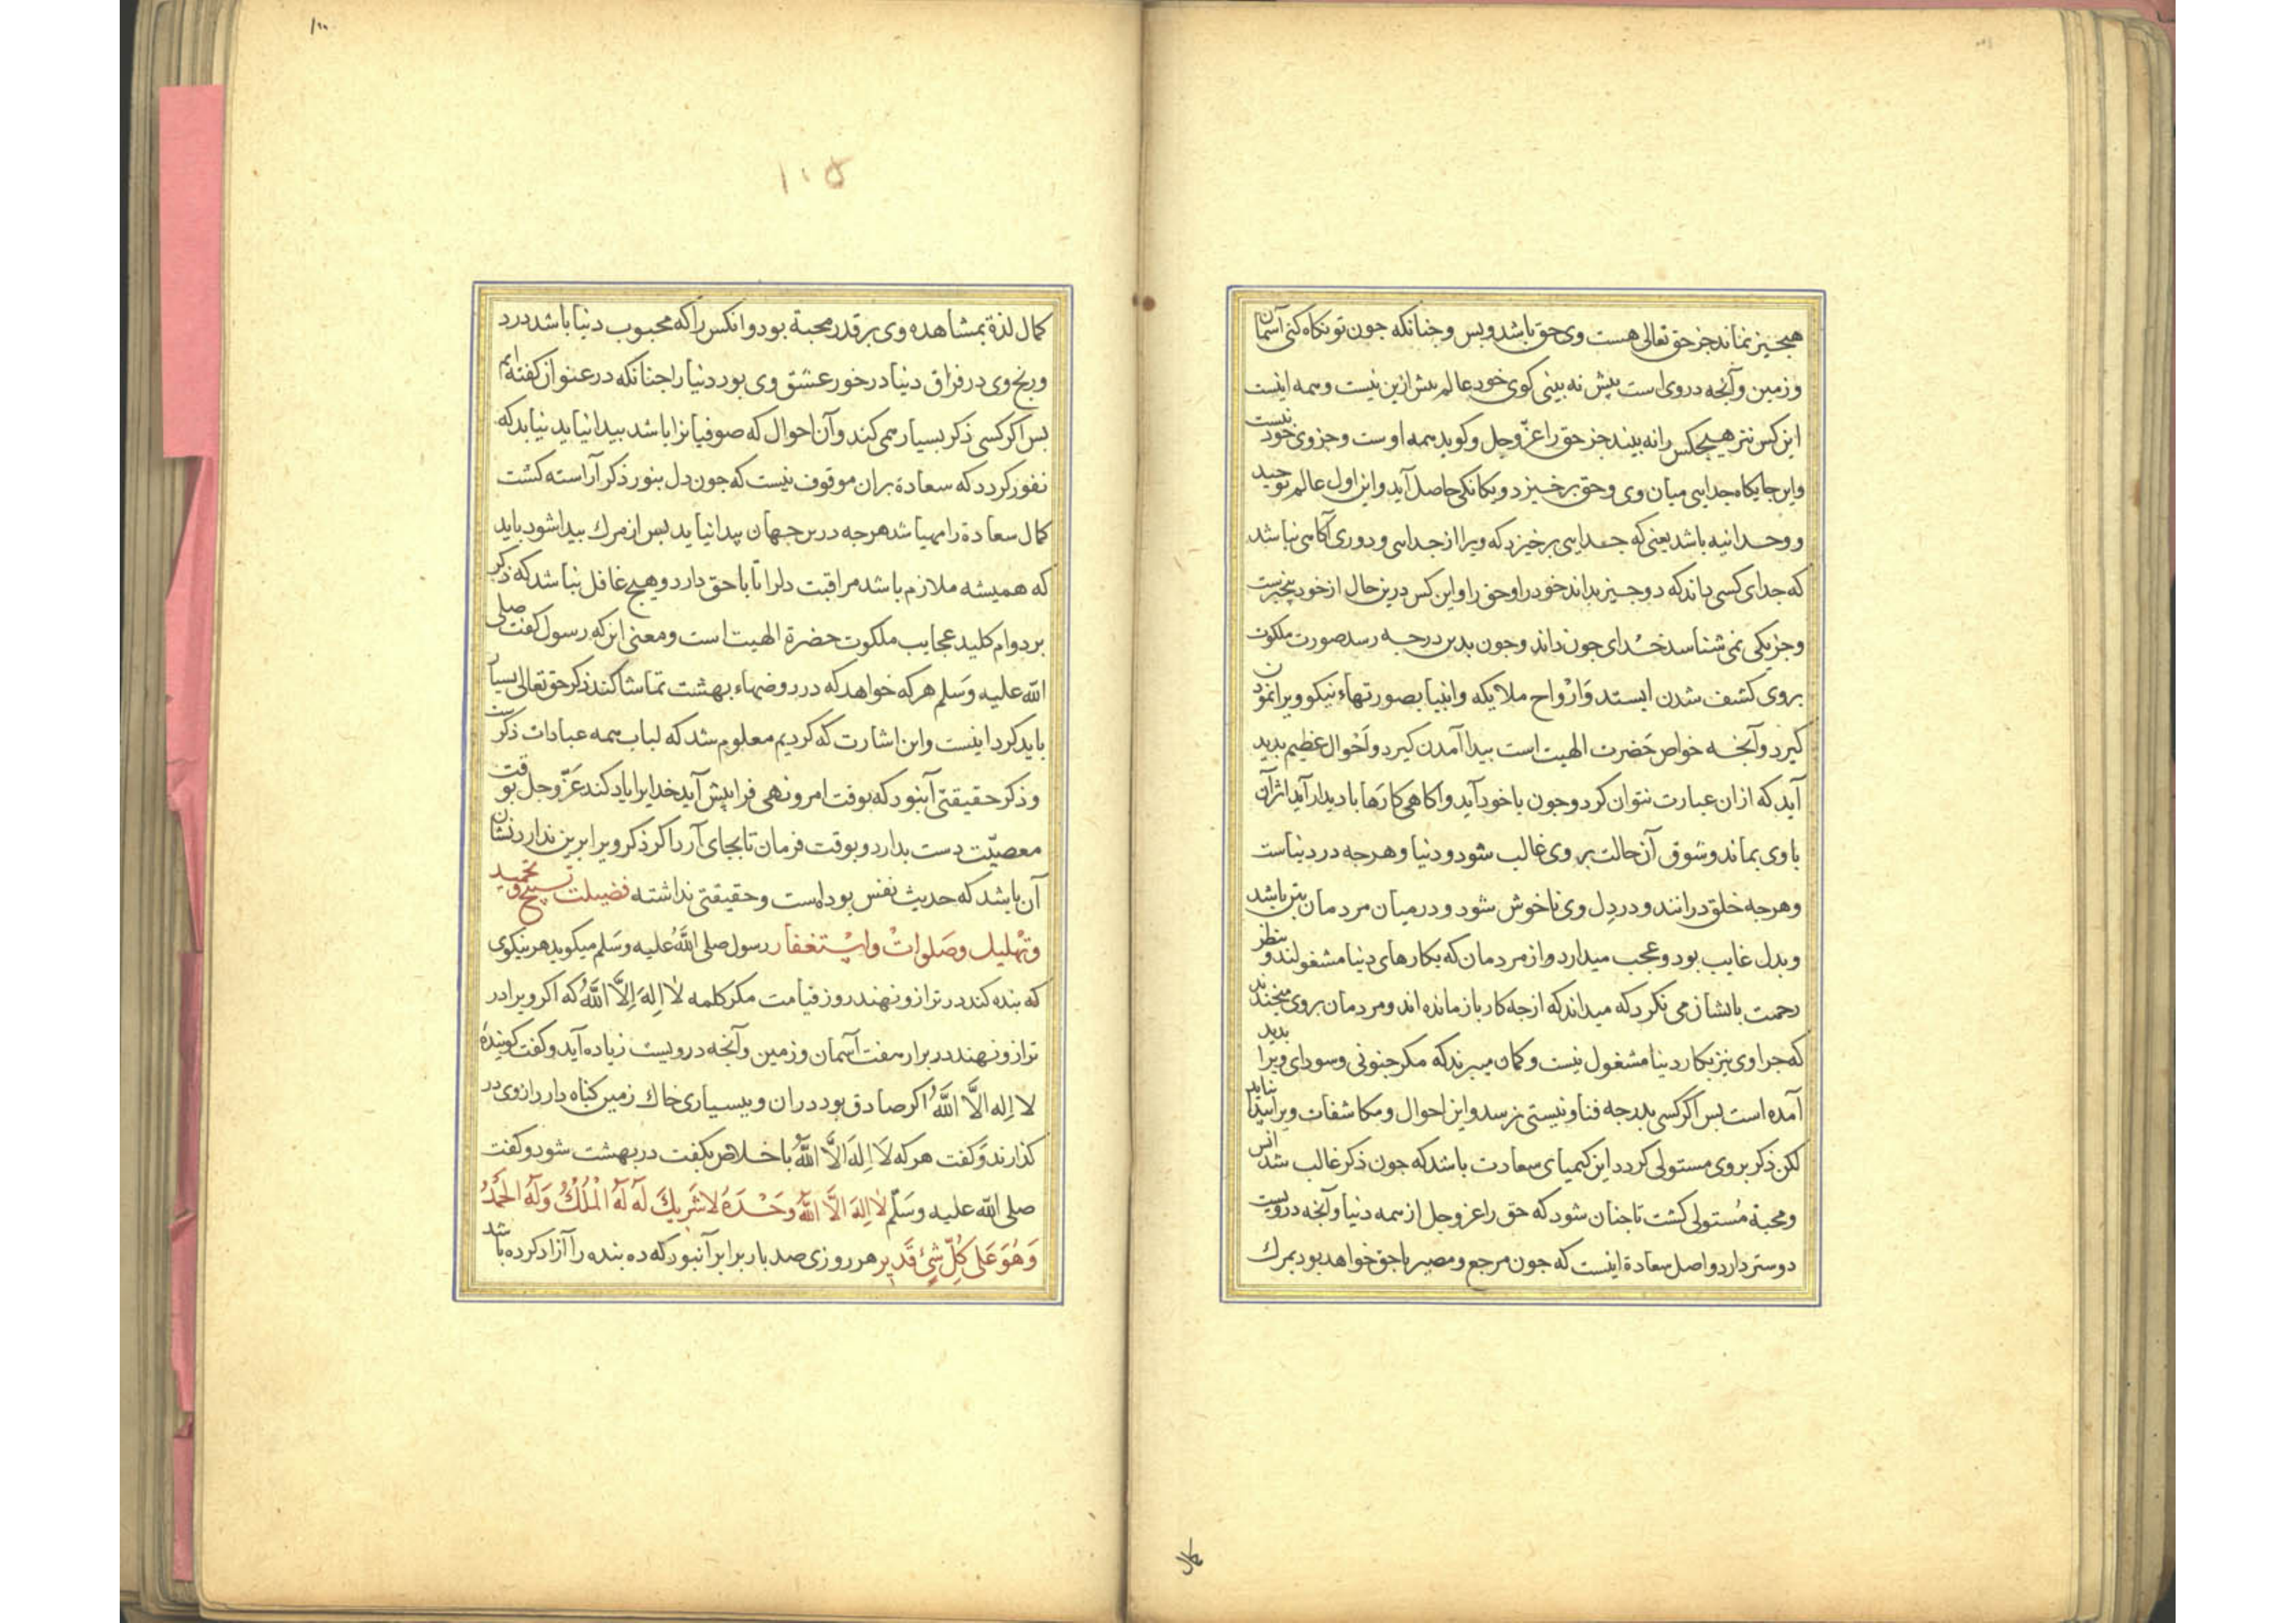 هیچیز نماند جز حق تعالی هست وی حق باشد و بس و چنانکه جون تو نکاه کنی آسمان
و زمین و آنجه در وی است بیش نه بینی کوی خود عالم بیش ازین نیست و همه اینست
این کس نیز هیچکس را نه بیند جز حق را عزّ و جل و کوید همه اوست و جز وی خود نیست
و این جایکاه جدایی میان وی و حق برخیزد و یکانکی حاصل آید و این اول عالم توحید
و وحدانیه باشد یعنی که جدایی برخیزد که ویرا از جدایی و دوری آکاهی نباشد
که جدای کسی داند که دو جیز بداند خود را و حق را و این کس درین حال از خود بیخبرست
و جز یکی نمی شناسد خدای جون داند و جون بدین درجه رسد صورت ملکوت
بروی کشف شدن ایستد وَارْواح ملایکه و انبیا بصورتهاء نیکو ویرا نمودن
کیرد و آنجه خواص حَضرت الهیت است بیدا آمدن کیرد و اَحْوال عظیم بدید
آید که ازان عبارت نتوان کرد و جون با خود آید و آکاهی کارَها با دیدار آید اثر آن
با وی بماند و شوق آن حالت بر وی غالب شود و دنیا و هرجه در دنیاست
و هرجه خلق درانند و در دِل وی ناخوش شود و در میان مردمان بتن باشد
و بدل غایب بود و عجب میدارد و از مردمان که بکارهای دنیا مشغولند و بنظر
رحمت بایشان می نکرد که میداند که از جه کار باز مانده اند و مردمان بر وی میخندند
که جرا وی نیز بکار دنیا مشغول نیست و کمان میبرند که مکر جنونی و سودای ویرا بدید
آمده است بس اکر کسی بدرجه فنا و نیستی نرسد و این احوال و مکاشفات ویرا بیدا نیاید
لکن ذکر بر وی مستولی کردد این کیمیای سعادت باشد که جون ذکر غالب شد انس
و محبة مُستولی کشت تا جنان شود که حق را عز و جل از همه دنیا و آنجه در ویست
دوستر دارد و اصل سعادة اینست که جون مرجع و مصیر با حق خواهد بود بمرك
کمال
١٠٠
١٠٥
کمال لذة بمشاهده وی بر قدر محبة بود و انکس را که محبوب دنیا باشد درد
و رنج وی در فراق دنیا در خور عشق وی بود دنیا را جنانکه در عنوان کفته ایم
بس اکر کسی ذکر بسیار همی کند و آن احوال که صوفیانرا باشد بیدا نیاید نباید که
نفور کردد که سعادة بران موقوف نیست که جون دل بنور ذکر آراسته کشت
کمال سعادة را مهیا شد هرجه درین جهان پیدا نیاید بس از مرك بیدا شود باید
که همیشه ملازم باشد مراقبت دلرا تا با حق دارد و هیچ غافل نباشد که ذکر
بر دوام کلید عجایب ملکوت حضرة الهیت است و معنی این که رسول کفت صلی
الله علیه وَسَلم هر که خواهد که در روضهاء بهشت تماشا کند ذکر حق تعالی بسیار
باید کرد اینست و این اشارت که کردیم معلوم شد که لباب همه عبادات ذکرست
و ذکر حقیقتی آنبود که بوقت امر و نهی فرا پیش آید خدایرا یاد کند عَزّ و جل بوقت
معصیّت دست بدارد و بوقت فرمان تا بجای آرد اکر ذکر ویرا برین ندارد نشان
آن باشد که حدیث نفس بوده است و حقیقتی نداشته فضیلت تسبیح و تحمید
و تهلیل وصَلواتْ و اسْتغفار رسول صلی اللّهُ علیه وسَلم میکوید هر نیکوی
که بنده کند در ترازو نهند روز قیامت مکر کلمه لا اِلهَ اِلاَّ اللّهُ که اکر ویرا در
ترازو نهند در برابر هفت آسمان و زمین و آنجه در ویست زیاده آید و کفت کوینده
لا اِله الاَّ اللّهُ اکر صادق بود دران و ببسیاری خاك زمین کناه دارد ازوی در
کذارند وَ کفت هر که لَا اِلهَ اَلاَّ اللّهُ باخلاص بکفت در بهشت شود و کفت
صلی الله علیه وسَلّم لا اِلهَ الاَّ اللّهُ وَحْدَهُ لا شَریكَ لَه لَهُ الْمُلكُ وَلَهُ الْحَمْدُ
وَهُوَ عَلی کُلِّ شَیْءٍ قَدیر هر روزی صد بار برابر آنبود که ده بنده را آزاد کرده باشد